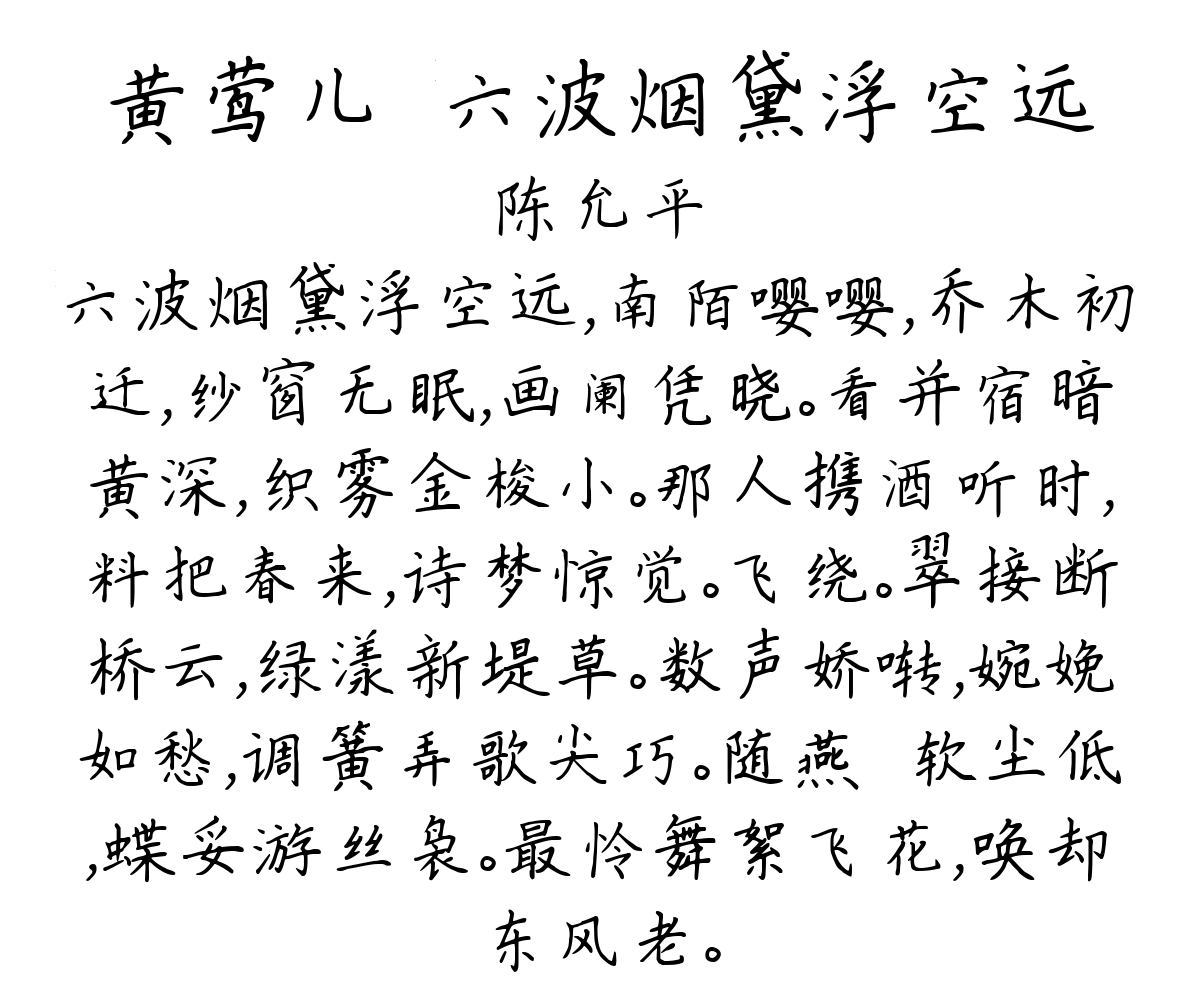 黄莺儿 六波烟黛浮空远
陈允平
六波烟黛浮空远,南陌嘤嘤,乔木初
迁,纱窗无眠,画阑凭晓。看并宿暗
黄深,织雾金梭小。那人携酒听时,
料把春来,诗梦惊觉。飞绕。翠接断
桥云,绿漾新堤草。数声娇啭,婉娩
如愁,调簧弄歌尖巧。随燕 软尘低
,蝶妥游丝袅。最怜舞絮飞花,唤却
东风老。